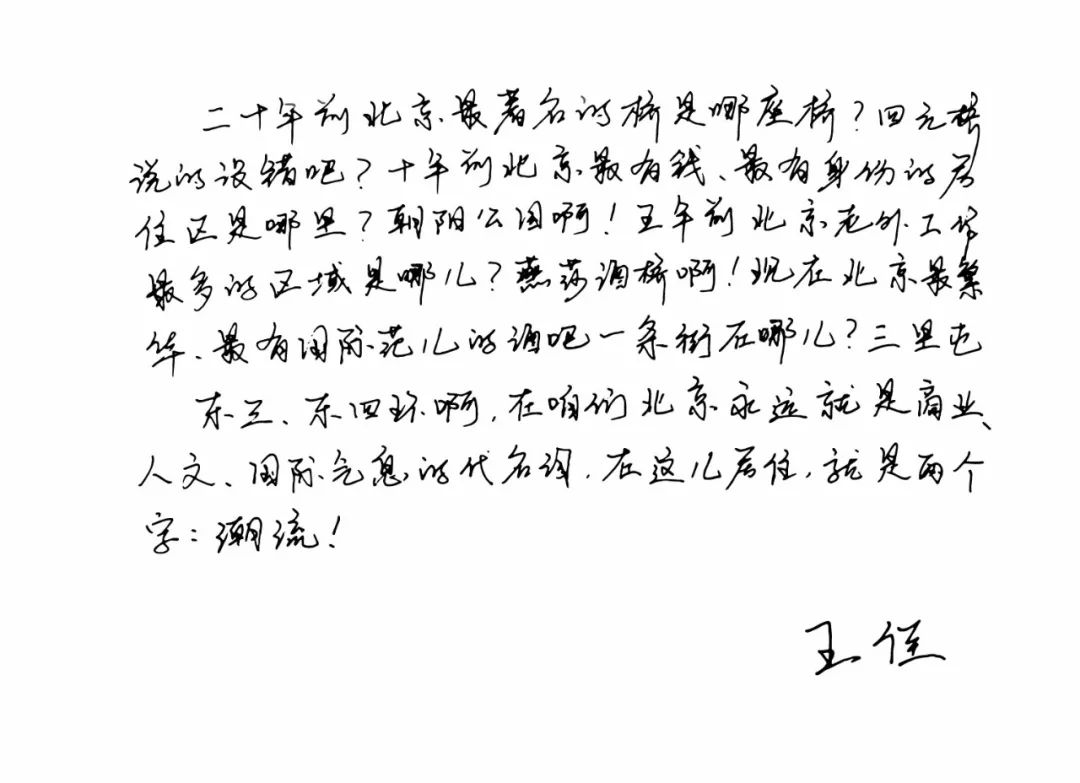 二十年前北京最著名的桥是哪座桥？四元桥
说的没错吧？十年前北京最有钱、最有身份的居
住区是哪里？朝阳公园啊！五年前北京老外工作
最多的区域是哪儿？燕莎酒桥啊！现在北京最繁
华、最有国际范儿的酒吧一条街在哪儿？三里屯
东三、东四环啊，在咱们北京永远就是商业、
人文、国际气息的代名词，在这儿居住，就是两个
字：潮流！
王佳